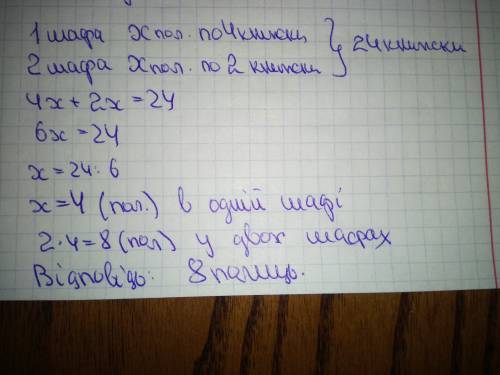 1 шафа X пол. по 4 книжки } 24 книжки
2 шафа X пол. по 2 книжки
4x + 2x = 24
6x = 24
x = 24 : 6
x = 4 (пол.) в одній шафі
2 · 4 = 8 (пол) у двох шафах
Відповідь: 8 полиць.